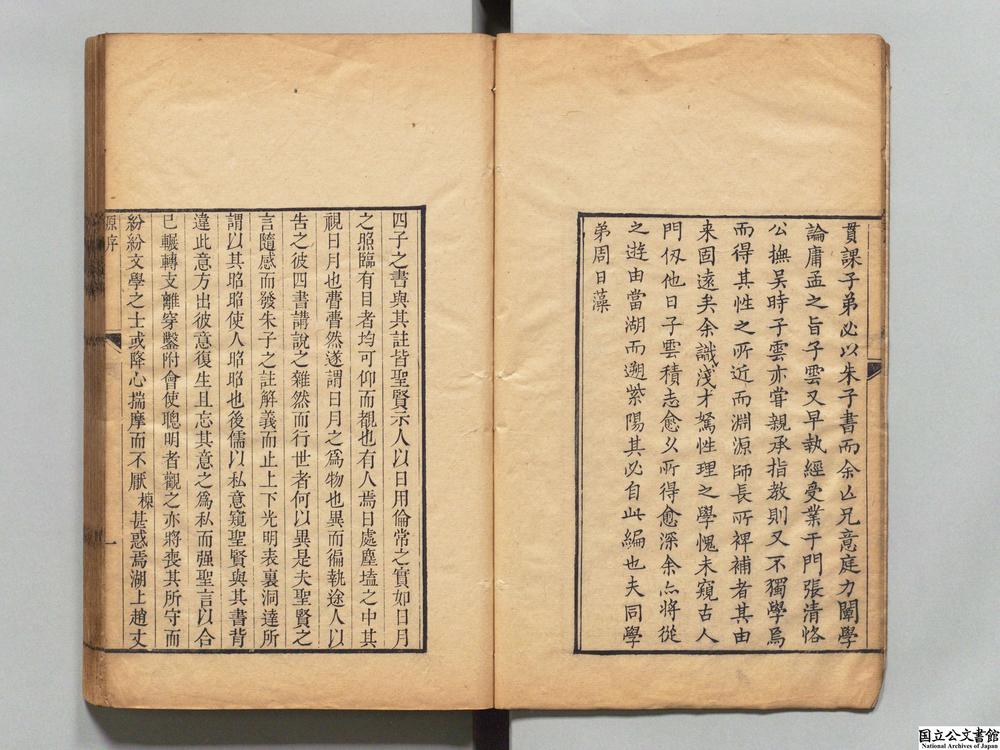 貫課子弟必以朱子書而余亡兄意庭力闡學
論庸孟之旨子雲又早執經受業于門張清恪
公撫吴時子雲亦嘗親承指教則又不獨學焉
而得其性之所近而淵源師長所裨補者其由
来固遠矣余識淺才駑性理之學愧未窺古人
門仭他日子雲積志愈久所得愈深余亦將從
之遊由當湖而遡紫陽其必自此編也夫同學
弟周日藻
四子之書與其註皆聖賢示人以日用倫常之實如日月
之照臨有目者均可仰而覩也有人焉日處塵壒之中其
視日月也瞢瞢然遂謂日月之爲物也異而徧執途人以
告之彼四書講說之雜然而行世者何以異是夫聖賢之
言隨感而發朱子之註解義而止上下光明表裏洞達所
謂以其昭昭使人昭昭也後儒以私意窺聖賢與其書背
違此意方出彼意復生且忘其意之爲私而强聖言以合
已輾轉支離穿鑿附會使聰明者觀之亦將喪其所守而
紛紛文學之士或降心揣摩而不厭棟甚惑焉湖上趙丈
原序
一
国立公文書館
National Archives of Japan